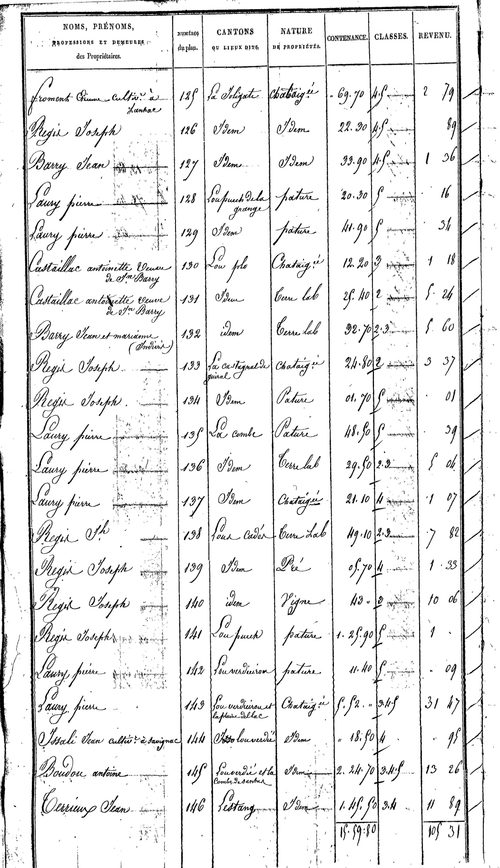 NOMS, PRÉNOMS, PROFESSIONS ET DEMEURES des Propriétaires. NUMÉROS du plan. CANTONS OU LIEUX DITS. NATURE DE PROPRIÉTÉS. CONTENANCE. CLASSES. REVENU.
froment cultivr à 125 La chataigée 69.70 4.5 2 79
Regis Joseph 126 Idem Idem 22.30 4.5 89
Barry Jean 127 Idem Idem 33.90 4.5 1 36
Laury pierre 128 Lou puech de la grange pature 20.30 5 16
Laury pierre 129 Idem pature 41.90 5 34
Castaillac antoinette veuve de Jn Barry 130 Lou plo Chataigée 12.20 3 1 18
Castaillac antoinette veuve de Jn Barry 131 Idem Terre lab 25.40 2 5 24
Barry Jean et marianne (Indivis) 132 idem Terre lab 32.70 2.3 5 60
Regis Joseph 133 La castagnal de Chataigée 24.80 2 3 37
Regis Joseph 134 Idem Pature 01.70 5 01
Laury pierre 135 La combe Pature 48.50 5 39
Laury pierre 136 Idem Terre lab 29.50 2.3 5 04
Laury pierre 137 Idem Chataigée 21.10 4 1 07
Regis Jh 138 Lous Terre Lab 49.10 2.3 7 82
Regis Joseph 139 Idem Pré 05.70 4 1 33
Regis Joseph 140 idem Vigne 43 3 10 06
Regis Joseph 141 Lou puech pature 1.25.90 5 1
Laury pierre 142 Lou verdieiron pature 11.40 5 09
Laury pierre 143 Lou verdieirou et Chataigée 5.52 3.4.5 31 47
Issali Jean cultivr à Savignac 144 lou verdié Idem 18.50 4 95
Boudou antoine 145 Lou verdié et la Combe de Idem 2.24.70 3.4.5 13 26
Terrieux Jean 146 Lestang Idem 1.45.50 3.4 11 89
15.59.80 105 31